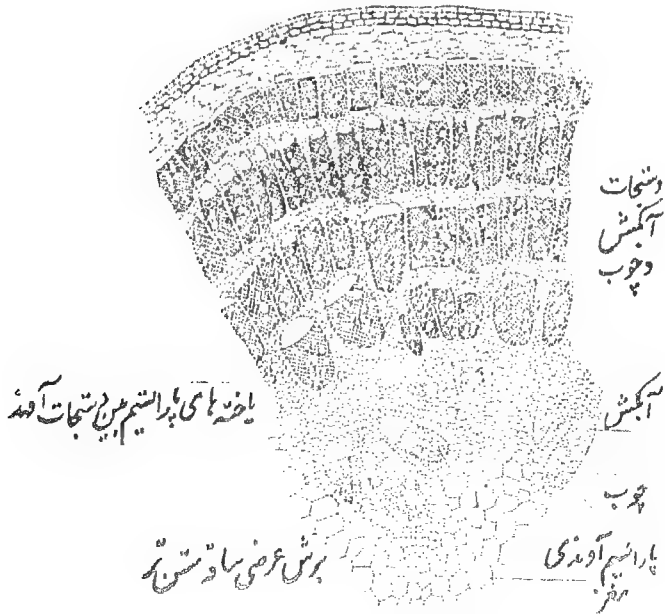 دستجات
آبکش
و چوب
یاخته های پارانشیم بین دستجات آوند
آبکش
چوب
پارانشیم آوندی
مغز
برش عرضی ساقه مسن تر